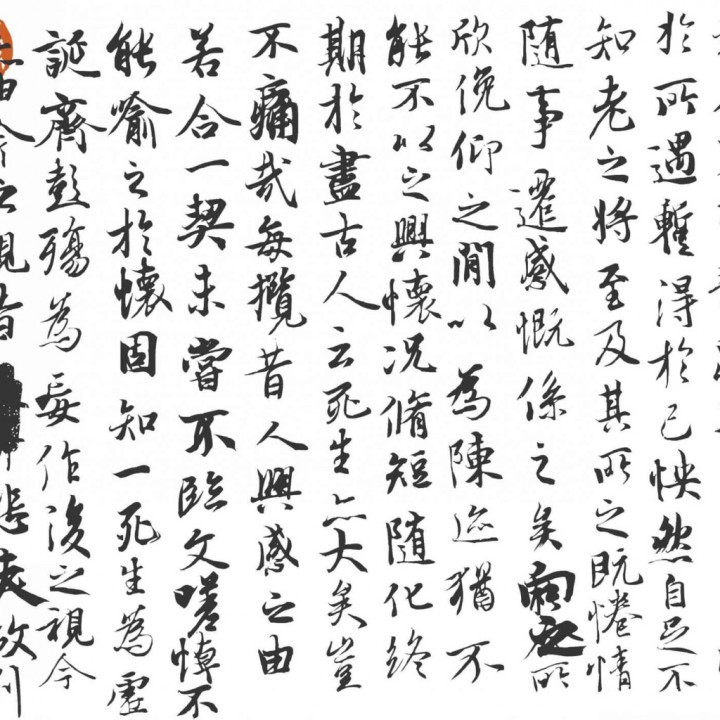 於所遇暫得於己怏然自足不
知老之將至及其所之既惓情
隨事遷感慨係之矣向之所
欣俛仰之閒以為陳迹猶不
能不以之興懷況脩短隨化終
期於盡古人云死生亦大矣豈
不痛哉每攬昔人興感之由
若合一契未嘗不臨文嗟悼不
能喻之於懷固知一死生為虛
誕齊彭殤為妄作後之視今
由今之視昔悲夫故列